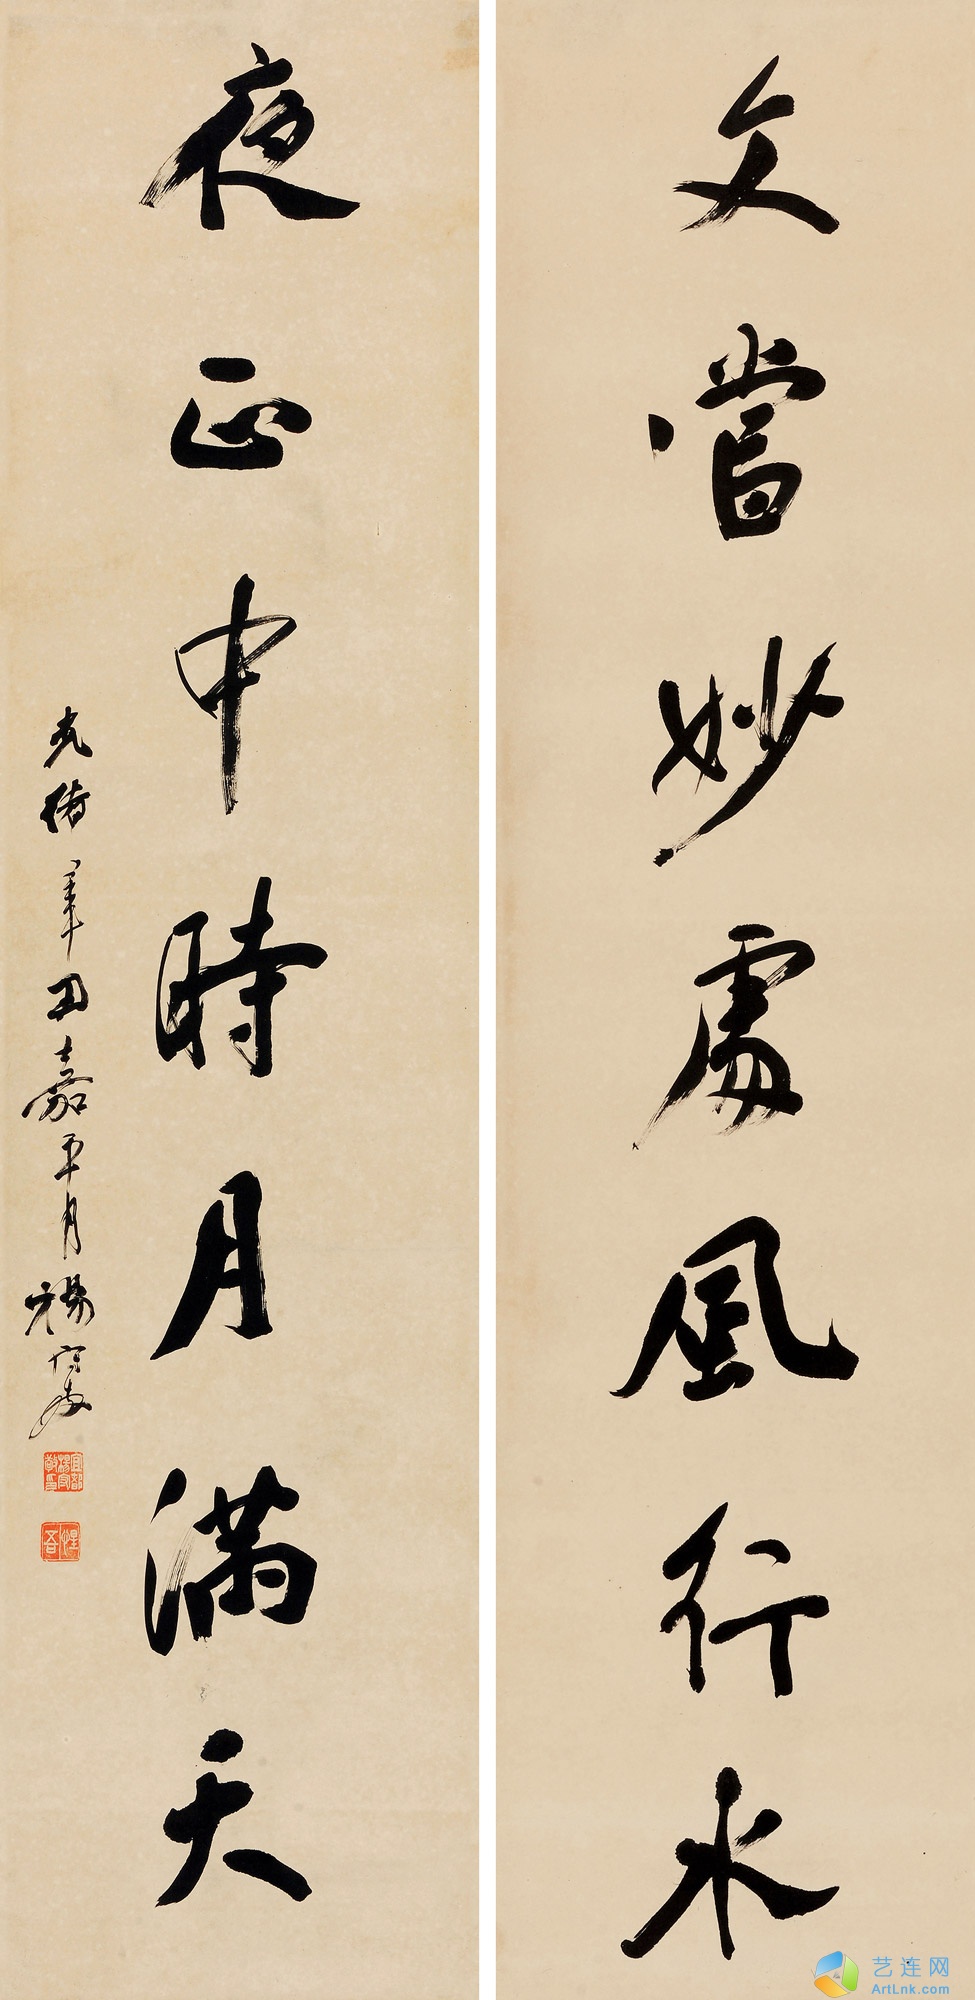 文當妙處風行水
夜正中時月滿天
光緒辛丑嘉平月楊守敬
宜都楊守敬印
惺吾
艺连网
ArtLnk.com